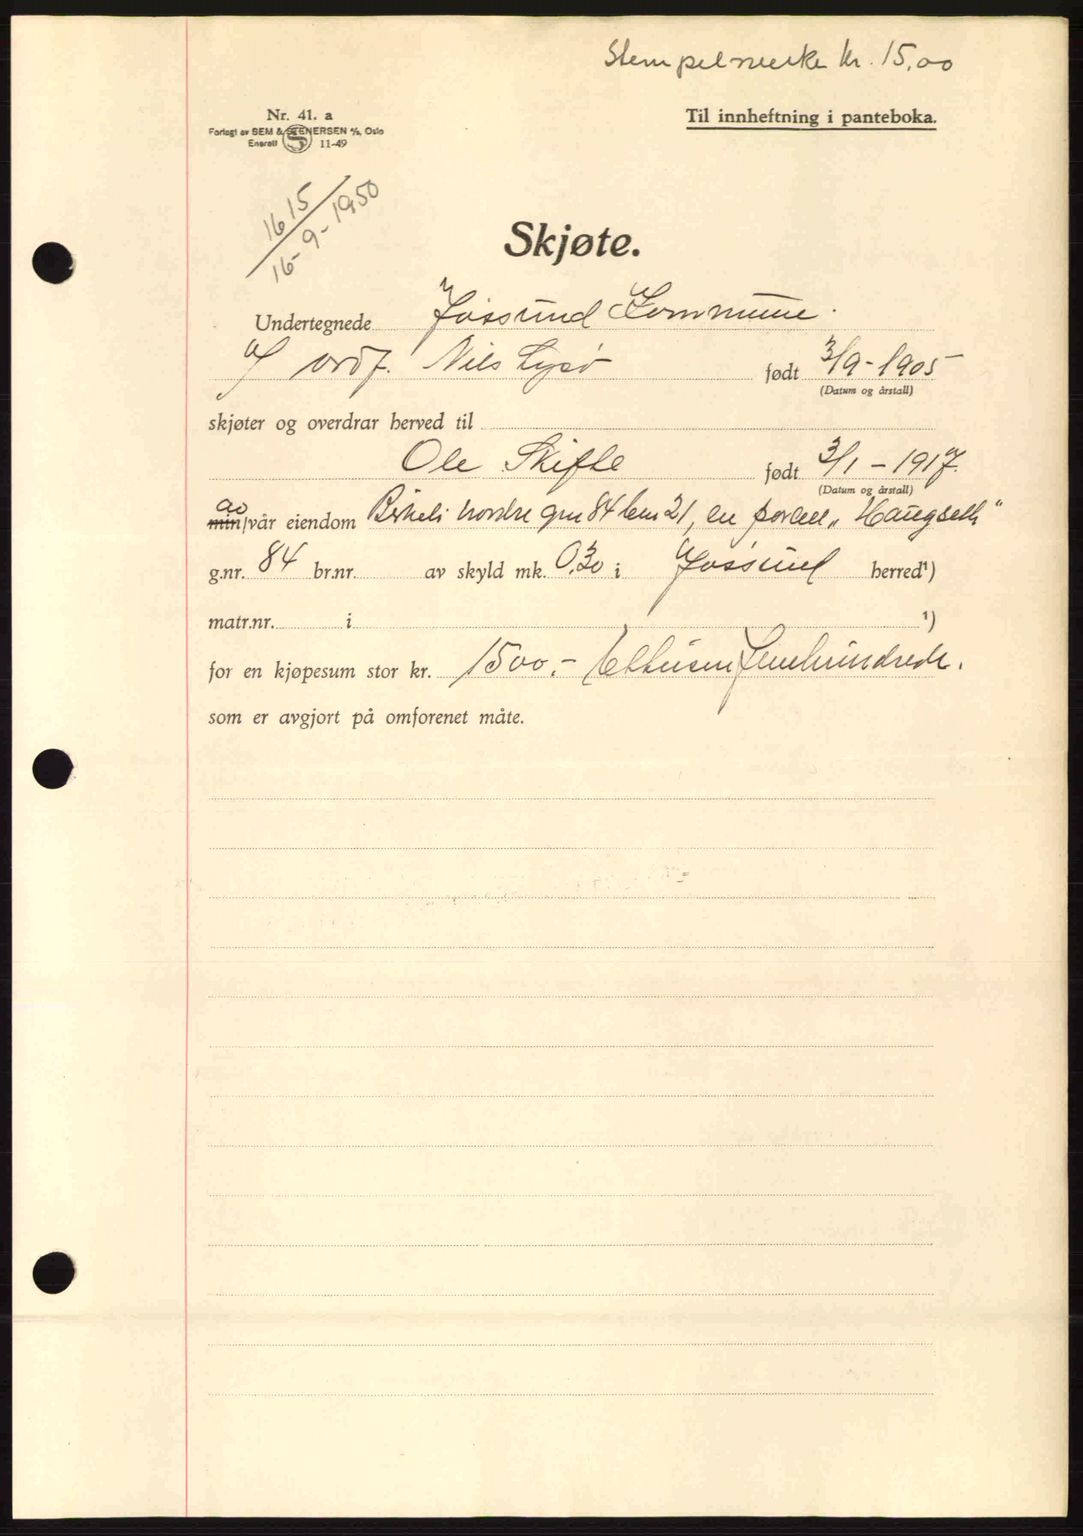 Stempelmerke kr. 15,00
Nr. 41. a
Forlagt av SEM & STENERSEN A/S, Oslo
Enerett S 11-49
Til innheftning i panteboka.
1615
16-9-1950
Skjøte.
Undertegnede Jøssund Kommune.
v/ ordf. Nils Lysø født 3/9-1905
(Datum og årstall)
skjøter og overdrar herved til
Ole Skifte født 3/1-1917.
(Datum og årstall)
av
min/vår eiendom Birkeli nordre gnr 84 bnr 21, en parsell „Haugseth"
g.nr. 84 br.nr. av skyld mk. 0.30 i Jøssund herred¹)
matr.nr. i ¹)
for en kjøpesum stor kr. 1500.- Ettusenfemhundrede.
som er avgjort på omforenet måte.